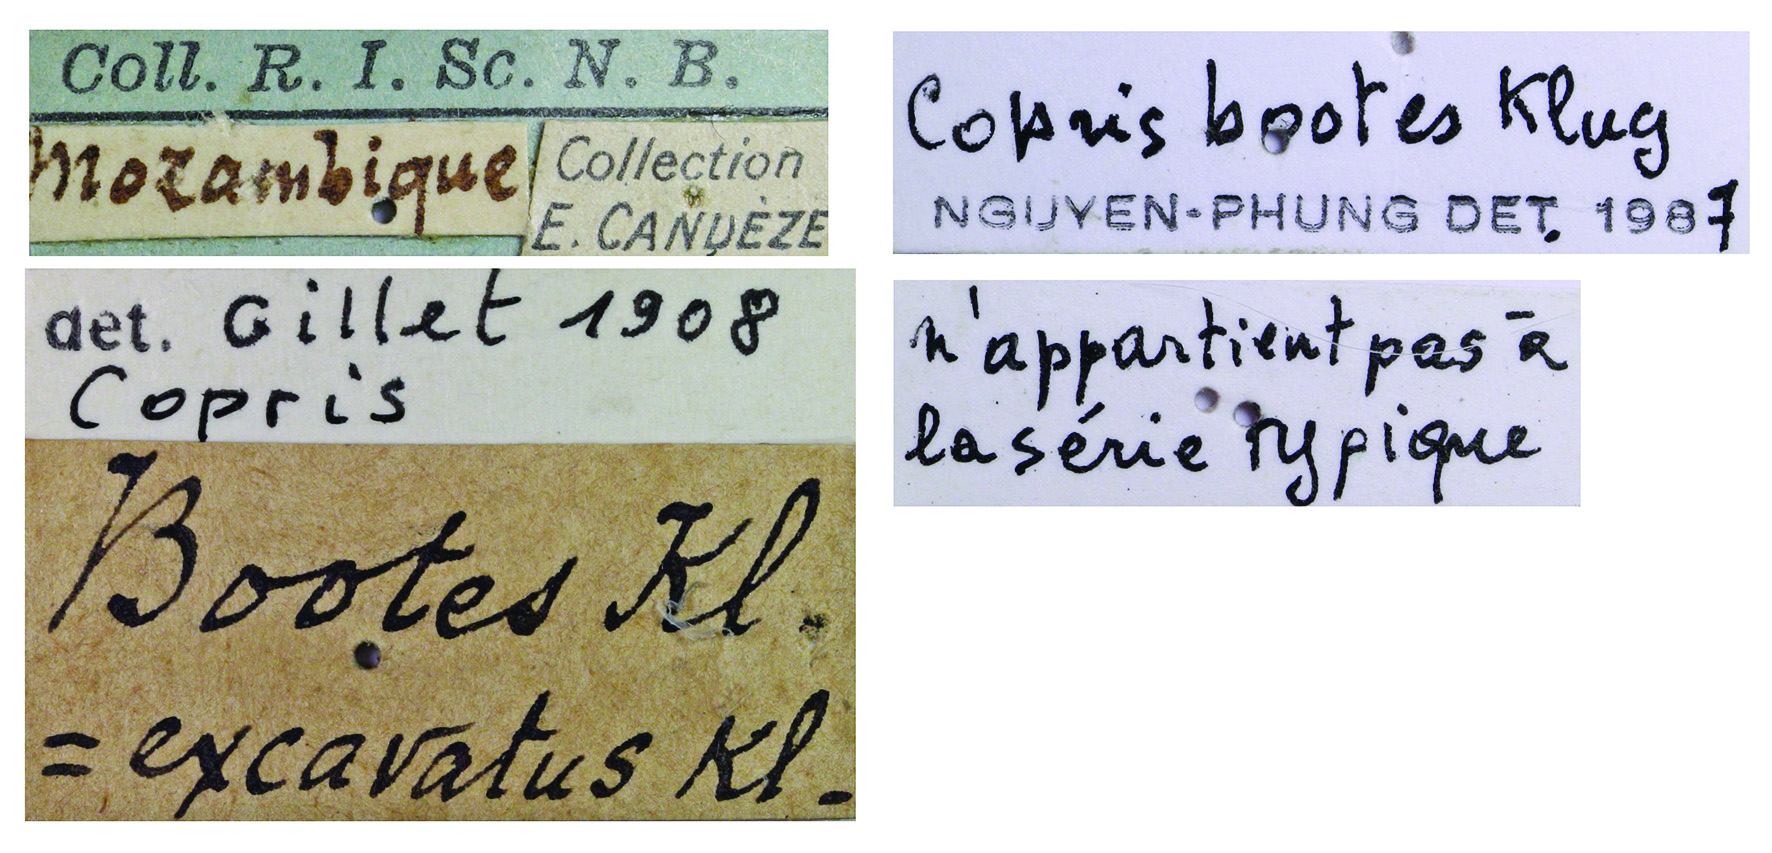 Coll. R. I. Sc. N. B.
Mozambique
Collection
E. CANDÈZE
det. Gillet 1908
Copris
Bootes Kl.
= excavatus Kl.
Copris bootes Klug
NGUYEN-PHUNG DET. 1987
n'appartient pas à
la série typique